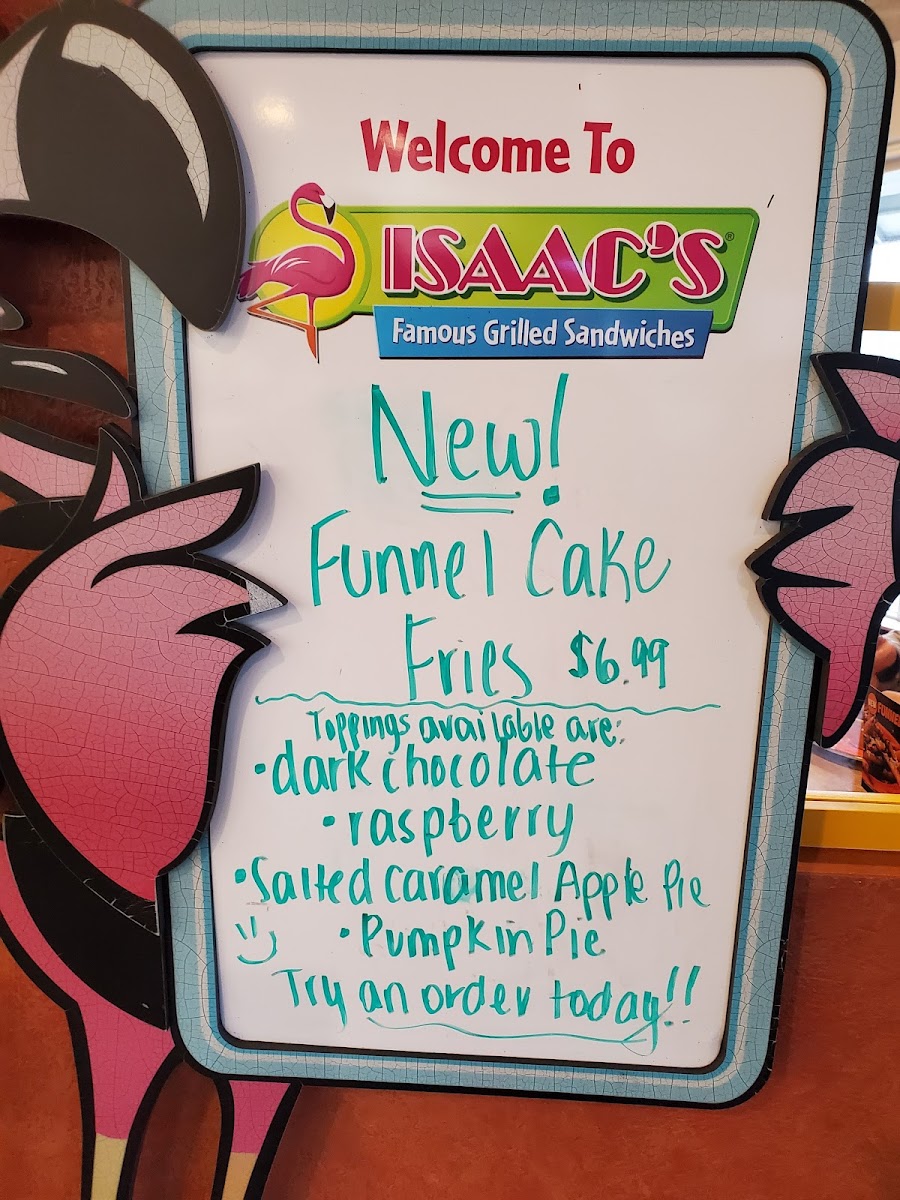 Welcome To
ISAAC'S®
Famous Grilled Sandwiches
New!
Funnel Cake
Fries $6.99
Toppings available are:
• dark chocolate
• raspberry
• Salted caramel Apple Pie
• Pumpkin Pie
Try an order today!!